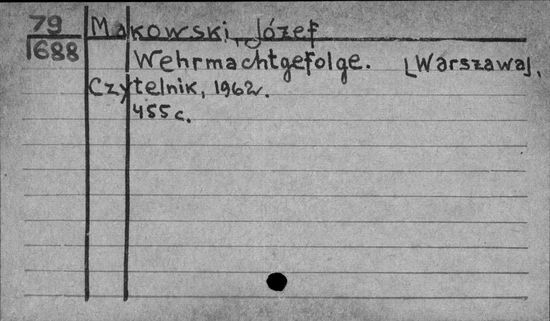 79 Makowski, Józef
1688 Wehrmachtgefolge. [Warszawa],
Czytelnik, 1962.
455 c.